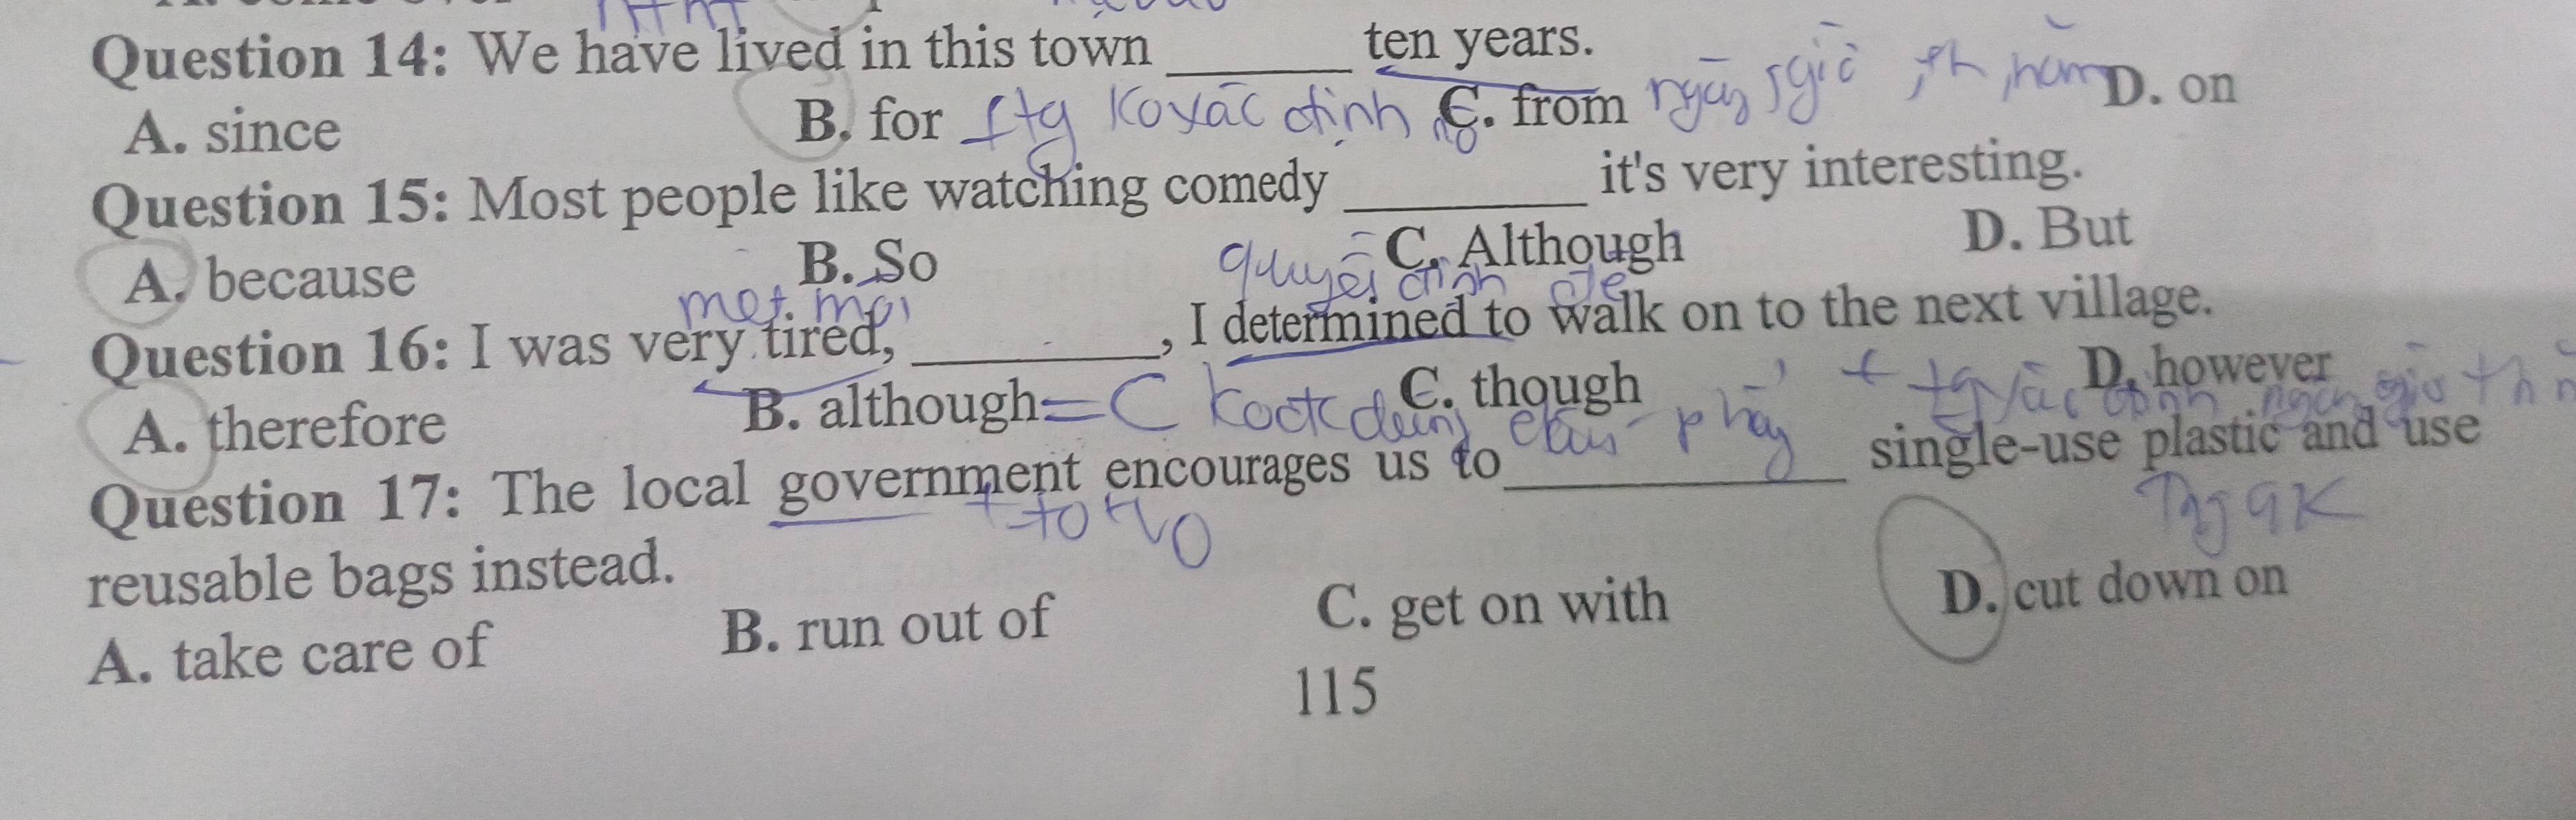 Question 14: We have lived in this town ______ ten years.
A. since B. for + tg ko xác định C. from ngày, giờ, th, năm D. on
Question 15: Most people like watching comedy ________ it's very interesting.
A. because B. So C. Although D. But
mệt mỏi quyết định để
Question 16: I was very tired, ________, I determined to walk on to the next village.
A. therefore B. although = C C. though D. however
Question 17: The local government encourages us to ___________ single-use plastic and use
+ to V0
reusable bags instead.
A. take care of B. run out of C. get on with D. cut down on
115